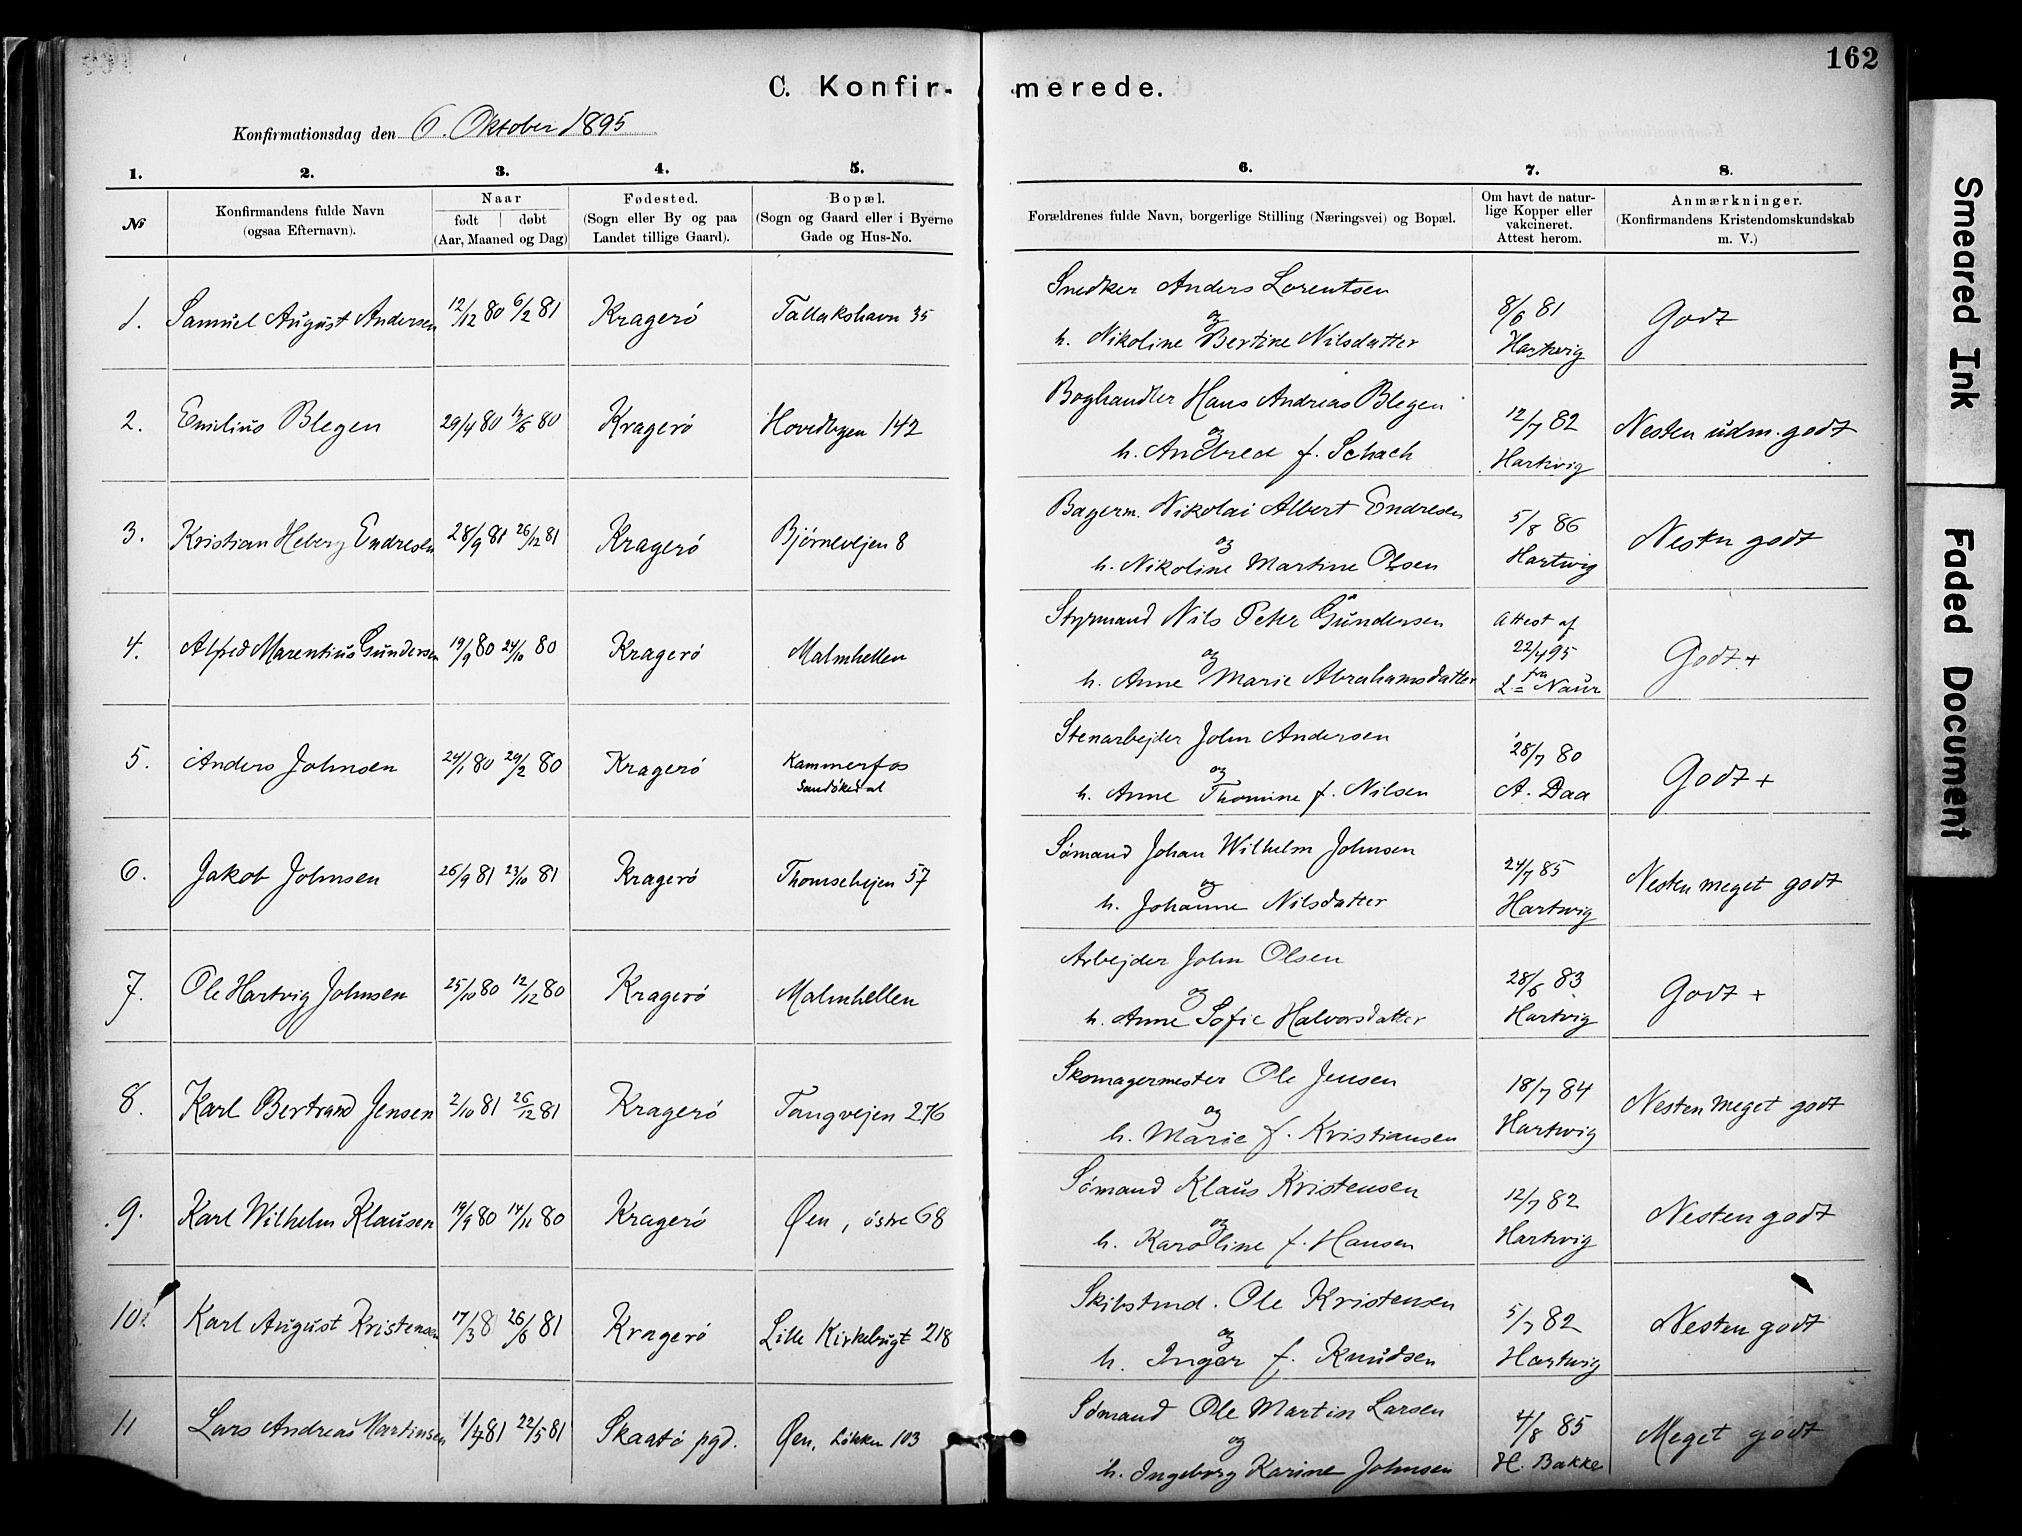 162
C. Konfir- merede.
Konfirmationsdag den 6. Oktober 1895
1. 2. 3. 4. 5. 6. 7. 8.
№ | Konfirmandens fulde Navn (ogsaa Efternavn). | Naar født | døbt (Aar, Maaned og Dag) | Fødested. (Sogn eller By og paa Landet tillige Gaard). | Bopæl. (Sogn og Gaard eller i Byerne Gade og Hus-No. | Forældrenes fulde Navn, borgerlige Stilling (Næringsvei) og Bopæl. | Om havt de naturlige Kopper eller vakcineret. Attest herom. | Anmærkninger. (Konfirmandens Kristendomskundskab m. V.)
1. Samuel August Andersen 12/12 80 6/2 81 Kragerö Tallakshavn 35 Snedker Anders Lorentsen og h. Nikoline Bertine Nilsdatter 8/6 81 Hartvig Godt
2. Emilius Blegen 29/4 80 13/6 80 Kragerö Hovedbyen 142 Boghandler Hans Andreas Blegen og h. Andrea f. Schach 12/7 82 Hartvig Nesten udm. godt
3. Kristian Heberg Endresen 28/9 81 26/12 81 Kragerö Bjørnevejen 8 Bagerm. Nikolai Albert Endresen og h. Nikoline Martine Olsen 5/8 86 Hartvig Nesten godt
4. Alfred Marentius Gundersen 19/9 80 24/10 80 Kragerö Malmhellen Styrmand Nils Peter Gundersen og h. Anne Marie Abrahamsdatter Attest af 22/4 95 fra L= Naur Godt +
5. Anders Johnsen 24/1 80 29/2 80 Kragerö Kammerfos Sandøkedal Stenarbejder John Andersen og h. Anne Thomine f. Nilsen 28/7 80 A. Daa Godt +
6. Jakob Johnsen 26/9 81 23/10 81 Kragerö Thomsehejen 57 Sömand Johan Wilhelm Johnsen og h. Johanne Nilsdatter 24/7 85 Hartwig Nesten meget godt
7. Ole Hartvig Johnsen 25/10 80 12/12 80 Kragerö Malmhellen Arbejder John Olsen og h. Anne Sofie Halvorsdatter 28/6 83 Hartvig Godt +
8. Karl Bertrand Jensen 2/10 81 26/12 81 Kragerö Tangvejen 276 Skomagermester Ole Jensen og h. Marie f. Kristiansen 18/7 84 Hartwig Nesten meget godt
9. Karl Wilhelm Klausen 19/9 80 14/11 80 Kragerö Øen, östre 68 Sömand Klaus Kristensen og h. Karoline f. Hansen 12/7 82 Hartvig Nesten godt
10. Karl August Kristensen 17/3 8 26/6 81 Kragerö Lille Kirkebugt 218 Skibstmd. Ole Kristensen og h. Inger f. Knudsen 5/7 82 Hartwig Nesten godt
11 Lars Andreas Martinsen 1/4 81 22/5 81 Skaatö pgd. Øen, Lökken 103 Sömand Ole Martin Larsen og h. Ingeborg Karine Johnsen 4/8 85 H. Bakke Meget godt
Smeared Ink
Faded Document